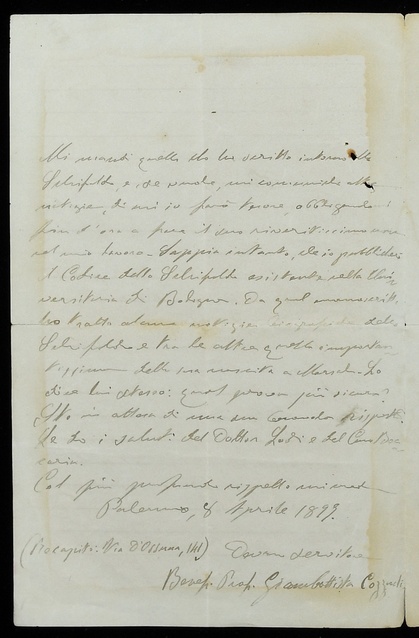 Mi mandi quello che ha scritto intorno allo
Schifaldo, e, se vuole, mi comunichi altre
notizie, di cui io farò tesoro, obbligandomi
fin d'ora a fare il suo nome
nel mio lavoro. Sappia intanto, che io pubblicherò
il Codice dello Schifaldo esistente nella Uni-
versitaria di Bologna. Da quel manoscritto
ho tratto alcune notizie dello
Schifaldo e tra le altre quella importan-
tissima della sua nascita a Marsala. Lo
dice lui stesso: qual prova più sicura?
Sto in attesa di una sua risposta.
Le do i saluti del Dottor Lodi e del Can.
Col più profondo rispetto mi creda
Palermo, 8 Aprile 1899.
(Recapiti: Via d'Ossuna, 141) Devmo servitore
Benef. Prof. Giambattista Cozzucli